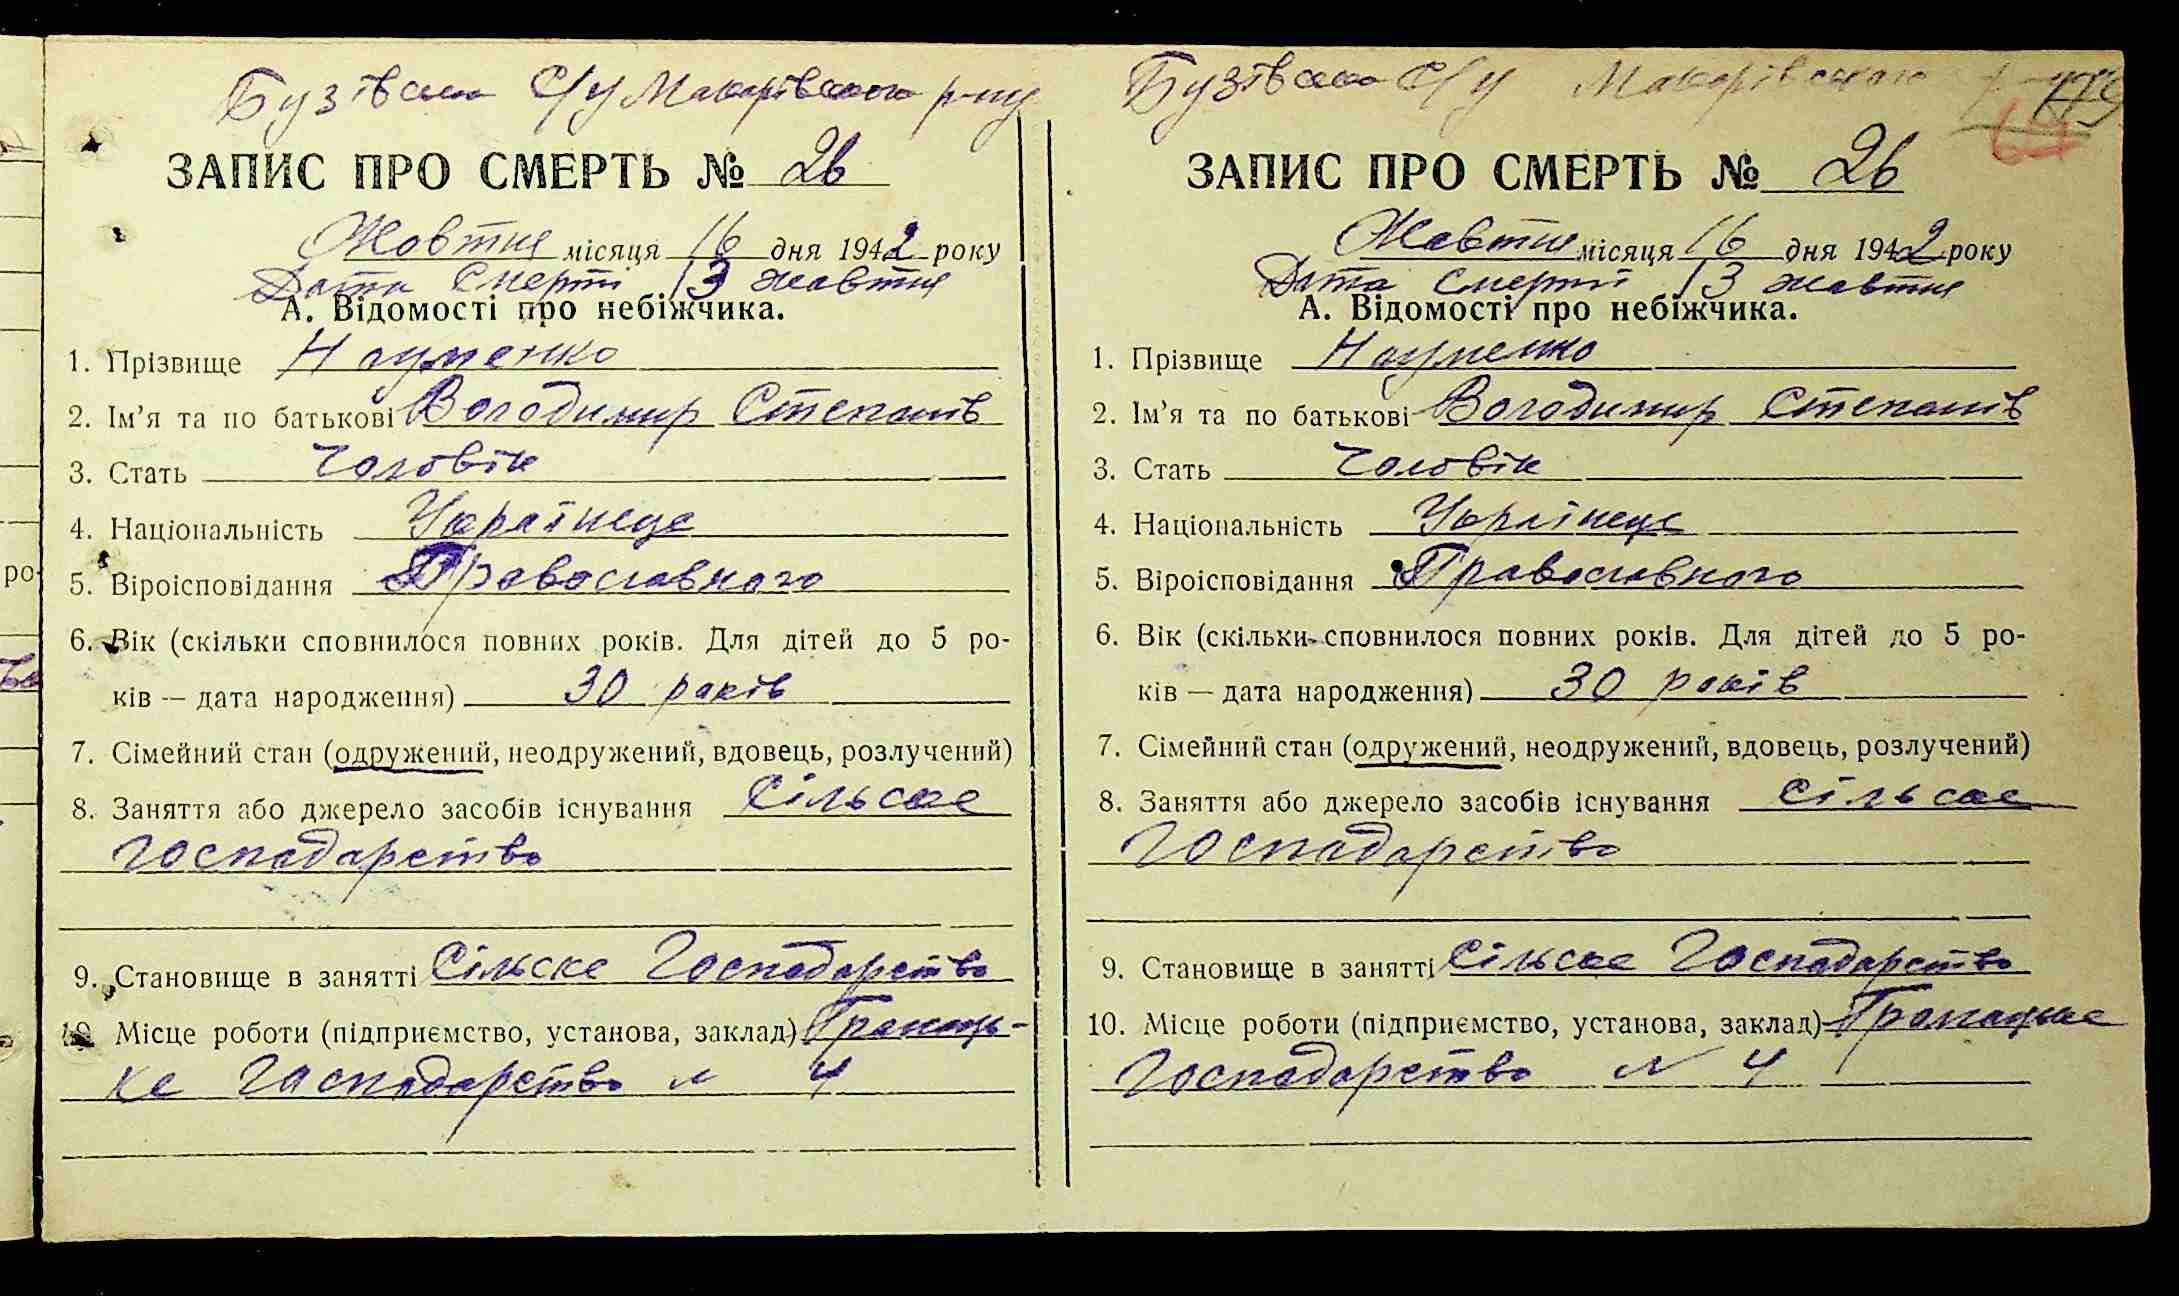 Бузівська С/у Макарівського р-ну
ЗАПИС ПРО СМЕРТЬ № 26
Жовтня місяця 16 дня 1942 року
Дата Смерти 13 жовтня
А. Відомості про небіжчика.
1. Прізвище Науменко
2. Ім'я та по батькові Володимир Степанів
3. Стать Чоловік
4. Національність Українець
5. Віроісповідання Православного
6. Вік (скільки сповнилося повних років. Для дітей до 5 ро-
ків — дата народження) 30 років
7. Сімейний стан (одружений, неодружений, вдовець, розлучений)
8. Заняття або джерело засобів існування Сільське
Господарство
9. Становище в занятті Сільске Господарство
10. Місце роботи (підприємство, установа, заклад) Громадь-
ке Господарство № 4
Бузівська С/у Макарівського
ЗАПИС ПРО СМЕРТЬ № 26
Жовтня місяця 16 дня 1942 року
Дата Смерти 13 жовтня
А. Відомості про небіжчика.
1. Прізвище Науменко
2. Ім'я та по батькові Володимир Степанів
3. Стать Чоловік
4. Національність Українець
5. Віроісповідання Православного
6. Вік (скільки сповнилося повних років. Для дітей до 5 ро-
ків — дата народження) 30 років
7. Сімейний стан (одружений, неодружений, вдовець, розлучений)
8. Заняття або джерело засобів існування Сільське
Господарство
9. Становище в занятті Сільське Господарство
10. Місце роботи (підприємство, установа, заклад) Громадське
Господарство № 4
ро-